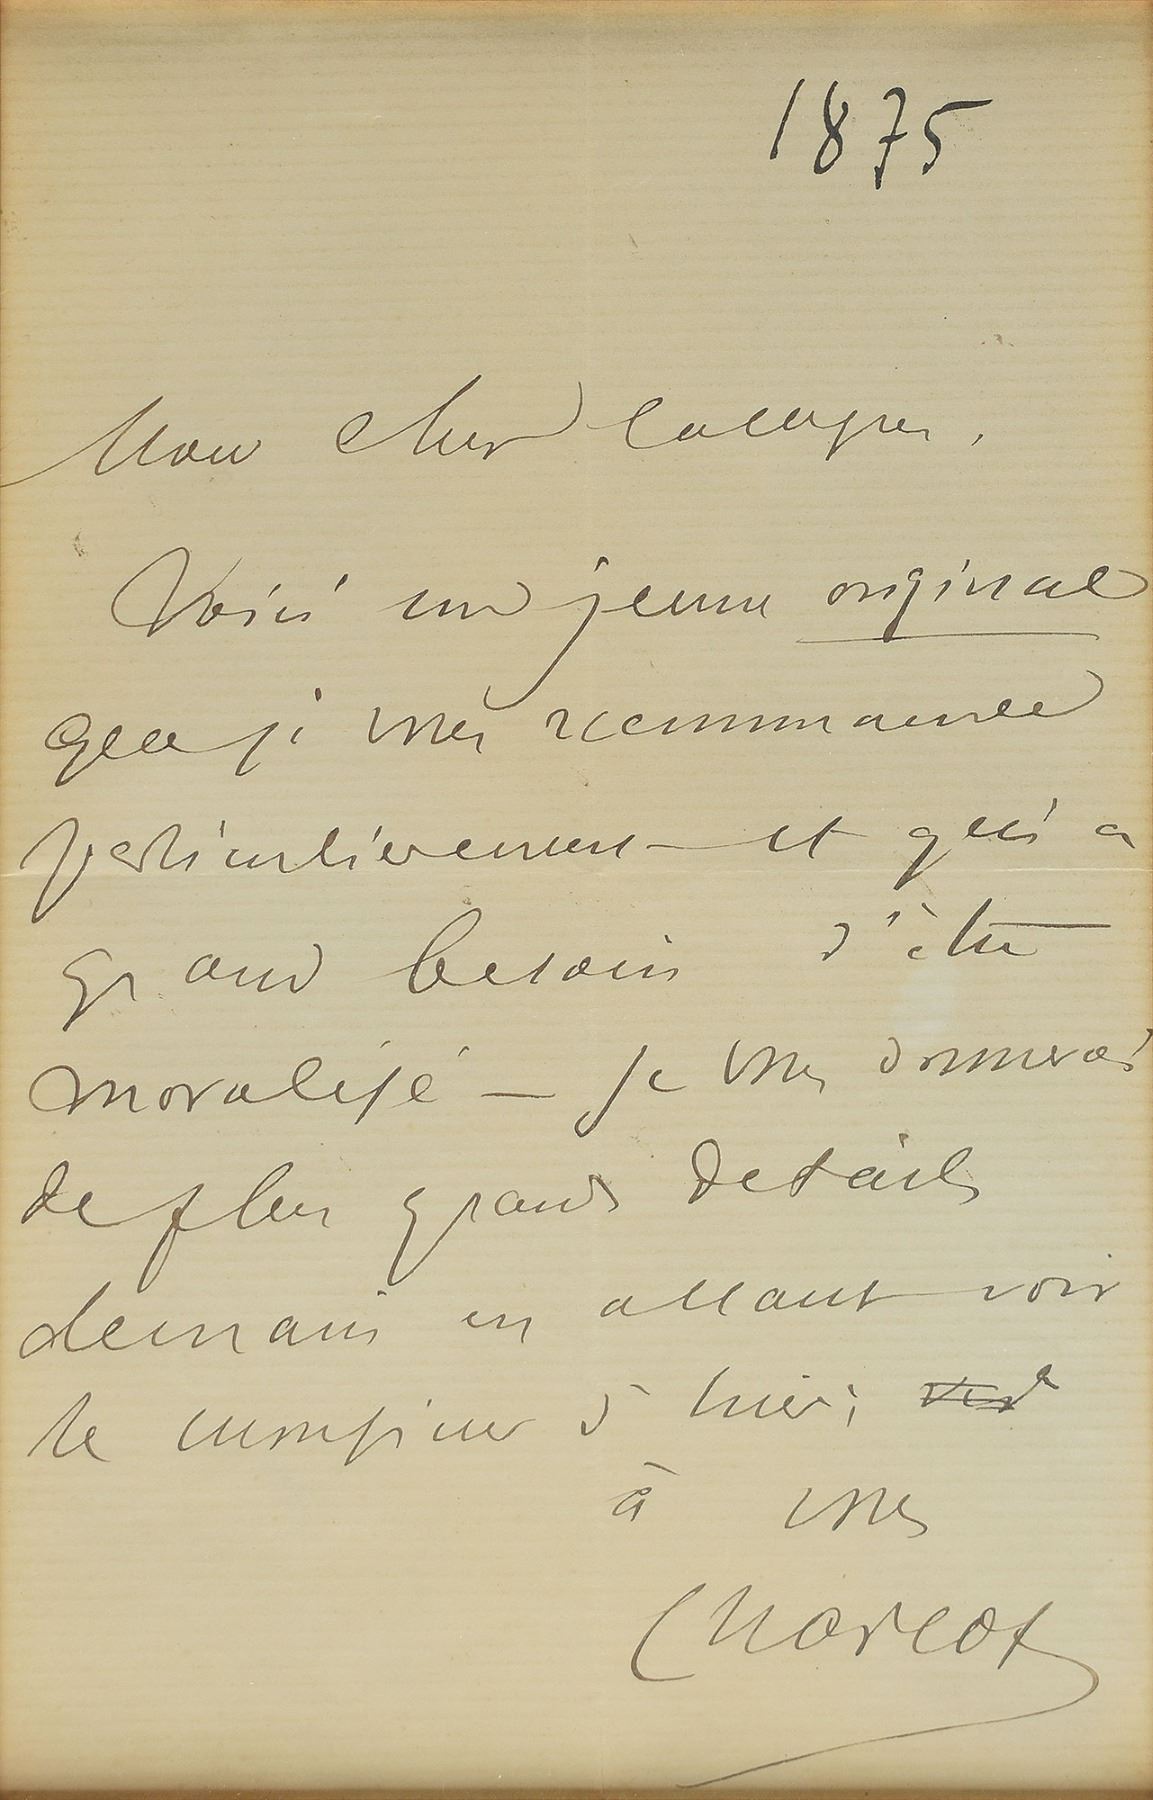 1875
Mon cher
Voici un jeune original
que je vous recommande
particulièrement et qui a
grand besoin d'être
moralisé – Je vous donnerai
de plus grands détails
demain en allant voir
le monsieur d'hier;
à vous
Charcot